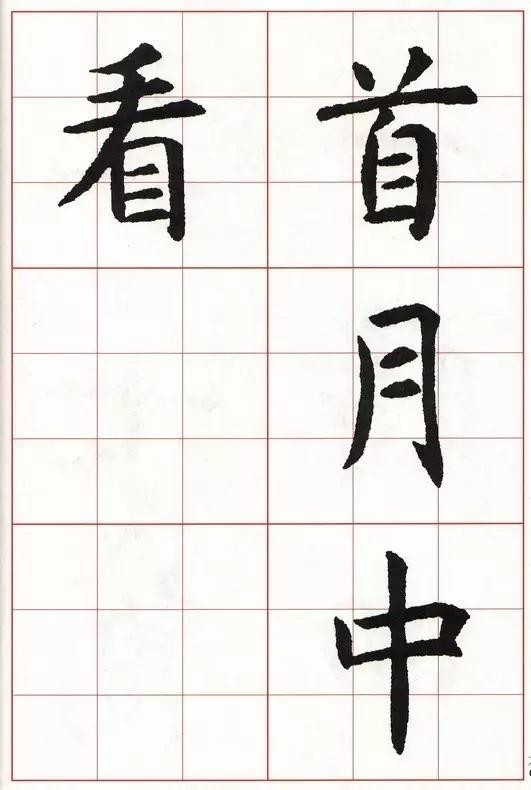 首月中
看